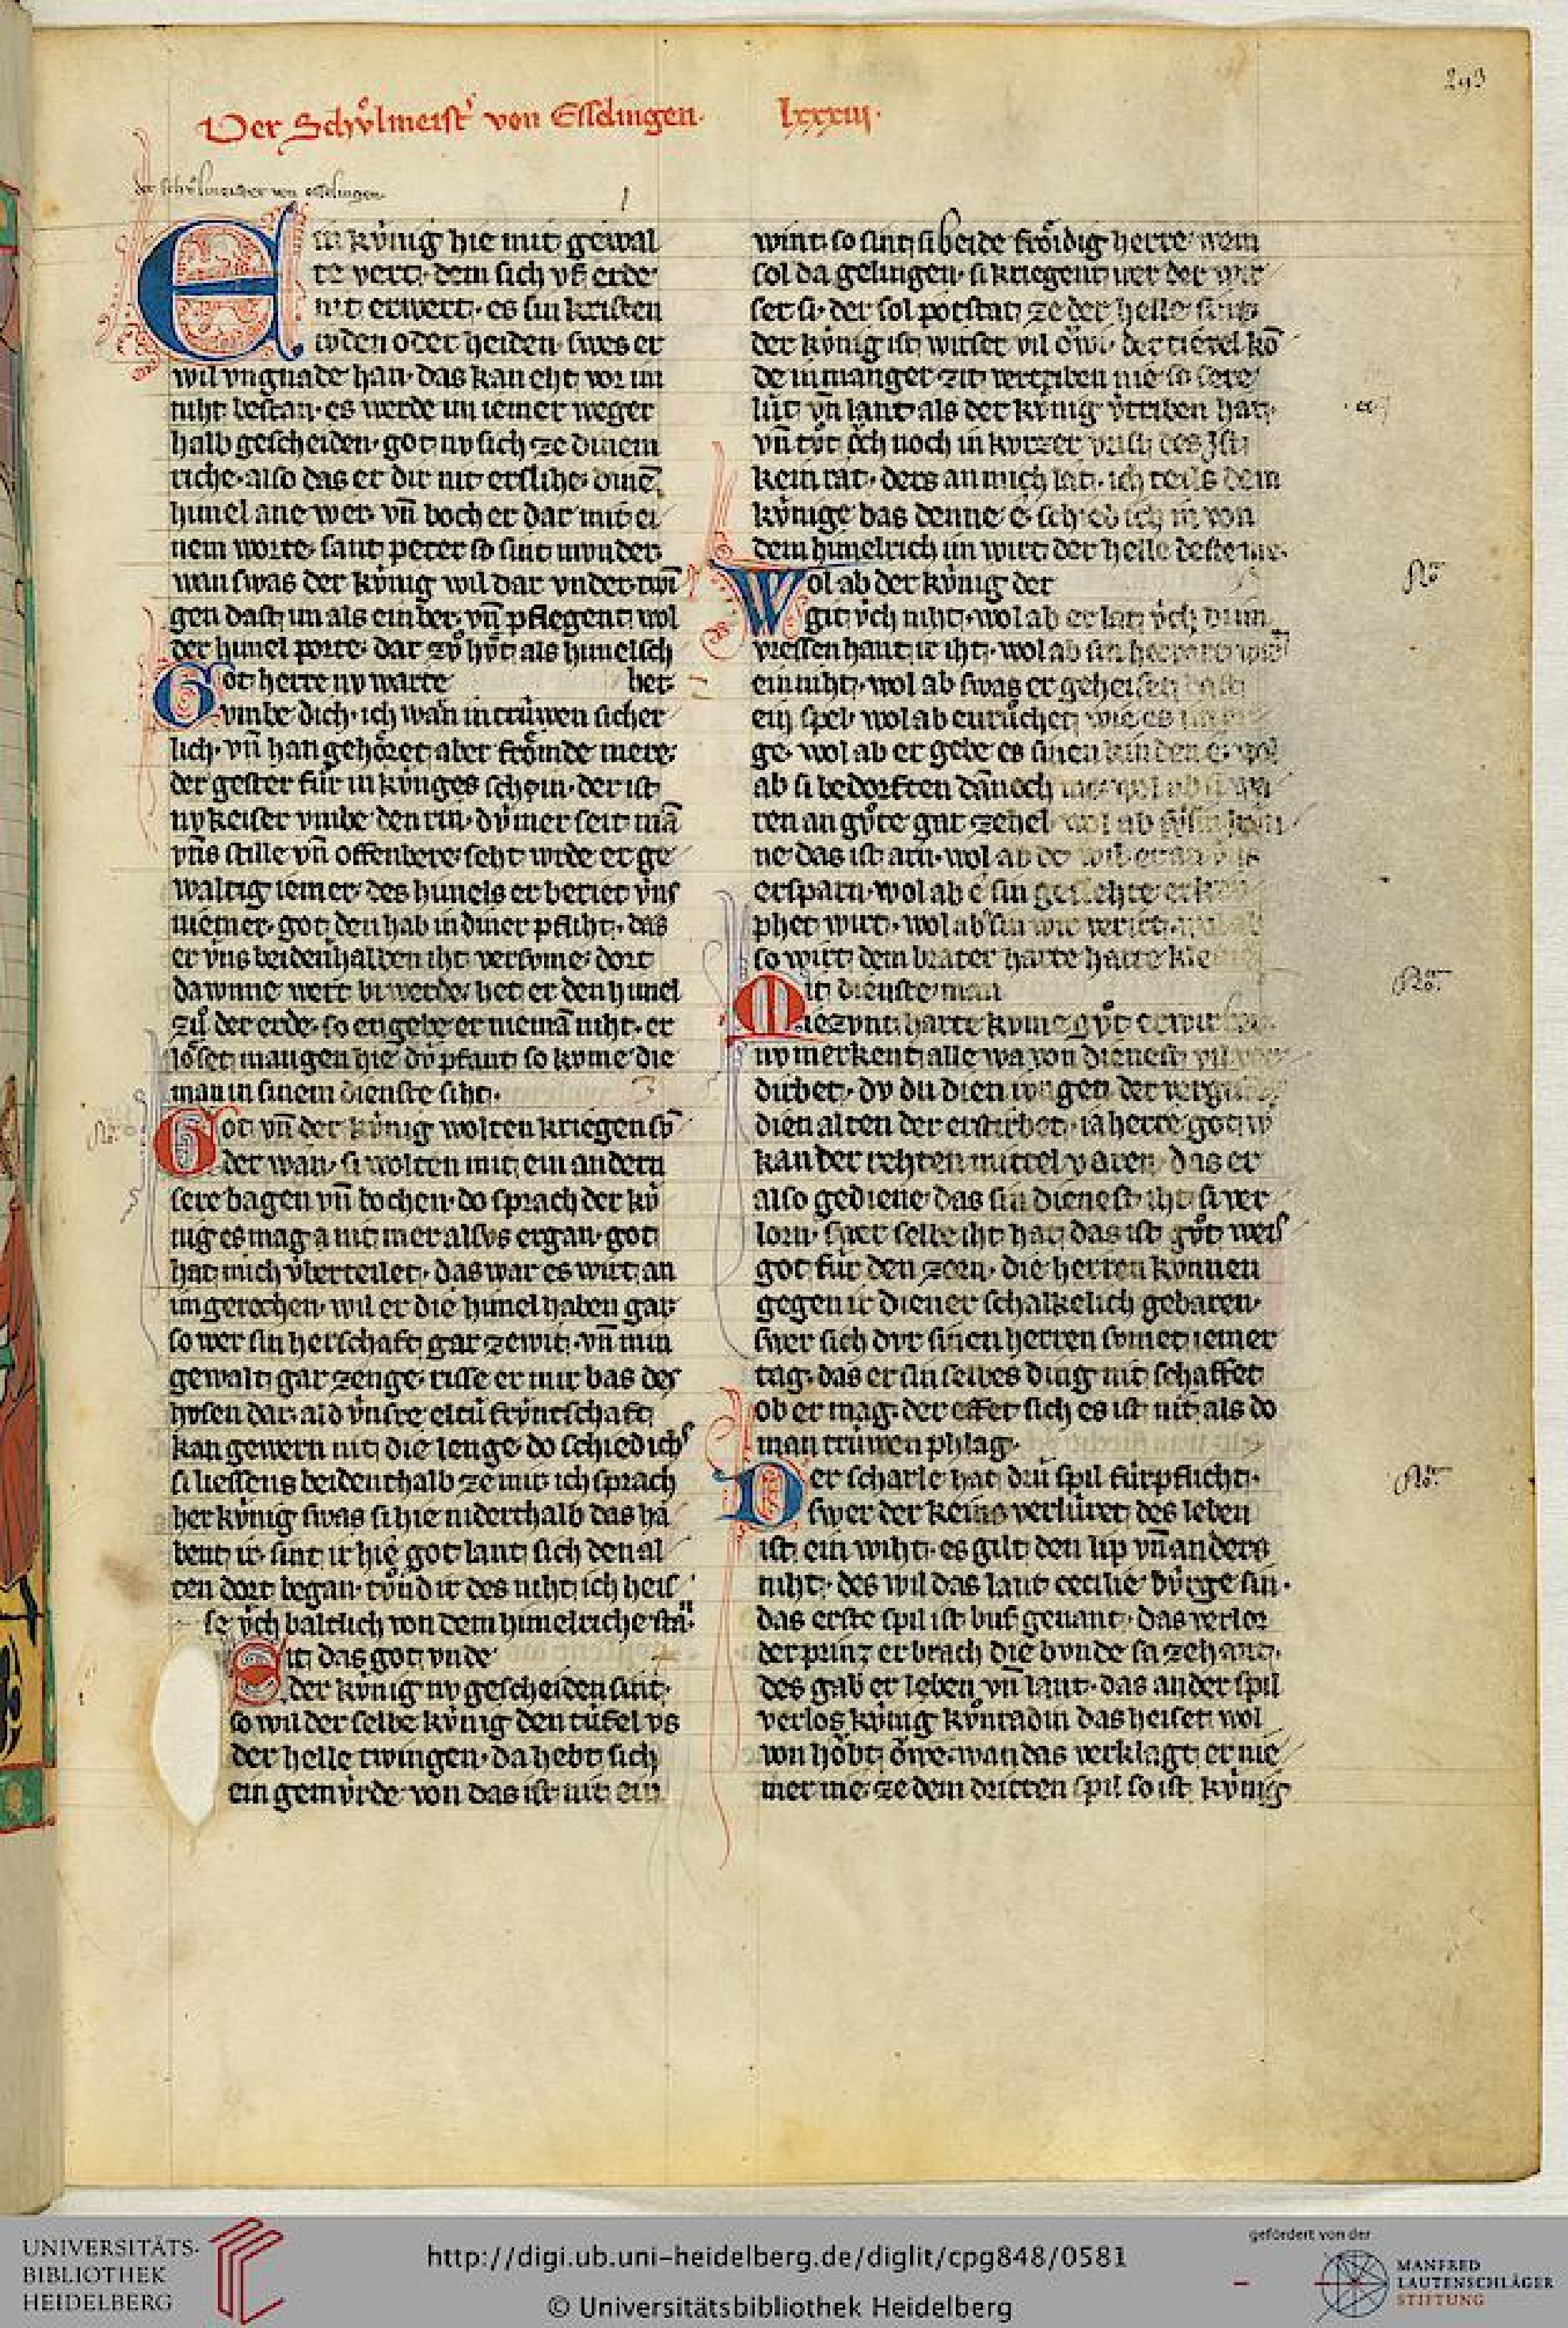 293
Der Schůlmeist' von Esselingen. lxxxiij.
der schůlmeister von esselingen
Ein kv́nig hie mit gewal
te vert. dem sich vf erde
nit erwert. es sin kristen
ivden oder heiden. swes er
wil vngnade han. das kan eht vor im
niht bestan. es werde im iemer weger
halb gescheiden. got nv sich ze dinem
riche. also das er dir nit erslihe. dinē
himel ane wer. vn̄ boch er dar mit ei
nem worte. sant peter so sint mvnder
wan swas der kv́nig wil dar vnder twī
gen dast im als ein ber. vn̄ pflegent wol
der himel porte. dar zů hv̊t als himelsch
Got herre nv warte her
vmbe dich. ich wān in trúwen sicher
lich. vn̄ han gehöret aber frömde mere.
der gester fúr in kv́nges schein. der ist
nv keiser vmbe den rin. dv́ mer seit mā
vn̄s stille vn̄ offenbere. seht wrde er ge
waltig iemer. des himels er beriet v́ns
niemer. got den hab in diner pfliht. das
er v́ns beidenhalben iht versvme. dort
da wnne wert bi werde. het er den himel
zů der erde. so engebe er niemā niht. er
löset mangen hie dv́ pfant so kvme die
man in sinem dienste siht.
Got vn̄ der kv́nig wolten kriegen sv̄
der wan. si wolten mit ein andern
sere bagen vn̄ bochen. do sprach der kv́
nig es mag a nit mer alsvs ergan. got
hat mich v́berteilet. das war es wirt an
im gerochen. wil er die himel haben gar.
so wer sin herschaft gar ze wit. vn̄ min
gewalt gar zenge. risse er mir bas der
hosen dar. ald v́nsre eltú frv́ntschaft
kan gewern nit die lenge. do schied ichs
si liessens beidenthalb ze mir ich sprach
her kv́nig swas si hie niderthalb das ha
bent ir. sint ir hie got lant sich den al
ten dort began. tůnd ir des niht ich heis
se v́ch baltlich von dem himelriche stā.
Sit das got vnde
der kv́nig nv gescheiden sint.
so wil der selbe kv́nig den túfel vs
der helle twingen. da hebt sich
ein gemv́rde von das ist nit ein
wint. so sint si beide fröidig herre wem
sol da gelingen. si kriegent wer der wir
ser si. der sol potstat ze der helle sing
der kv́nig ist wirser vil öwi. der tievel kō
de in manger zit vertriben nie so sere
lút vn̄ lant als der kv́nig v'triben hat.
vn̄ tůt öch noch in kvrzer vrist des Ist
kein rat. ders an mich lat. ich teils dem
kv́nige bas denne e. schied ich in von
dem himelrich im wirt der helle deste me.
Wol ab der kv́nig der
git v́ch niht. wol ab er lat v́ch bi im
vressen hant ir iht. wol ab
ein niht. wol ab swas er geheiset dast
ein spel. wol ab enrůchet wie es
ge. wol ab er gebe es sinen kinden e. wol
ab si bedorften dānoch me. wol ab
ren an gůte gar zehel wol ab
ne das ist arn. wol ab
ersparn. wol ab e sin geslehte
phet wirt. wol ab
so wirt dem brater harte harte kle
Mit dienste man
iezvnt harte kvme gůt
nv merkent alle wa von dienest
dirbet. dv du dien ivngen der
dien alten der erstirbet. ia herre got
kan der rehten mittel varen das er
also gediene das sin dienest iht si ver
lorn. swer selbe iht hat das ist gůt weis
got fúr den zorn. die herren kvnnen
gegen ir diener schalkelich gebaren.
swer sich dvr sinen herren svmet iemer
tag. das er sin selbes ding nit schaffet
ob er mag. der effet sich es ist nit als do
man trúwen phlag.
Der scharle hat drú spil fúrpflicht.
swer der keins verlúret des leben
ist ein wiht. es gilt den lip vn̄ anders
niht. des wil das lant cecilie bv́rge sin.
das erste spil ist buf genant. das verlor
der prinz er brach die bvnde sa zehant.
des gab er leben vn̄ lant. das ander spil
verlos kv́nig kv́nradin das heiset wol
von höbt öwe. wan das verklagt er nie
mer me. ze dem dritten spil so ist kv́nig
UNIVERSITÄTS-
BIBLIOTHEK
HEIDELBERG
http://digi.ub.uni-heidelberg.de/diglit/cpg848/0581
© Universitätsbibliothek Heidelberg
gefördert von der
MANFRED
LAUTENSCHLÄGER
STIFTUNG